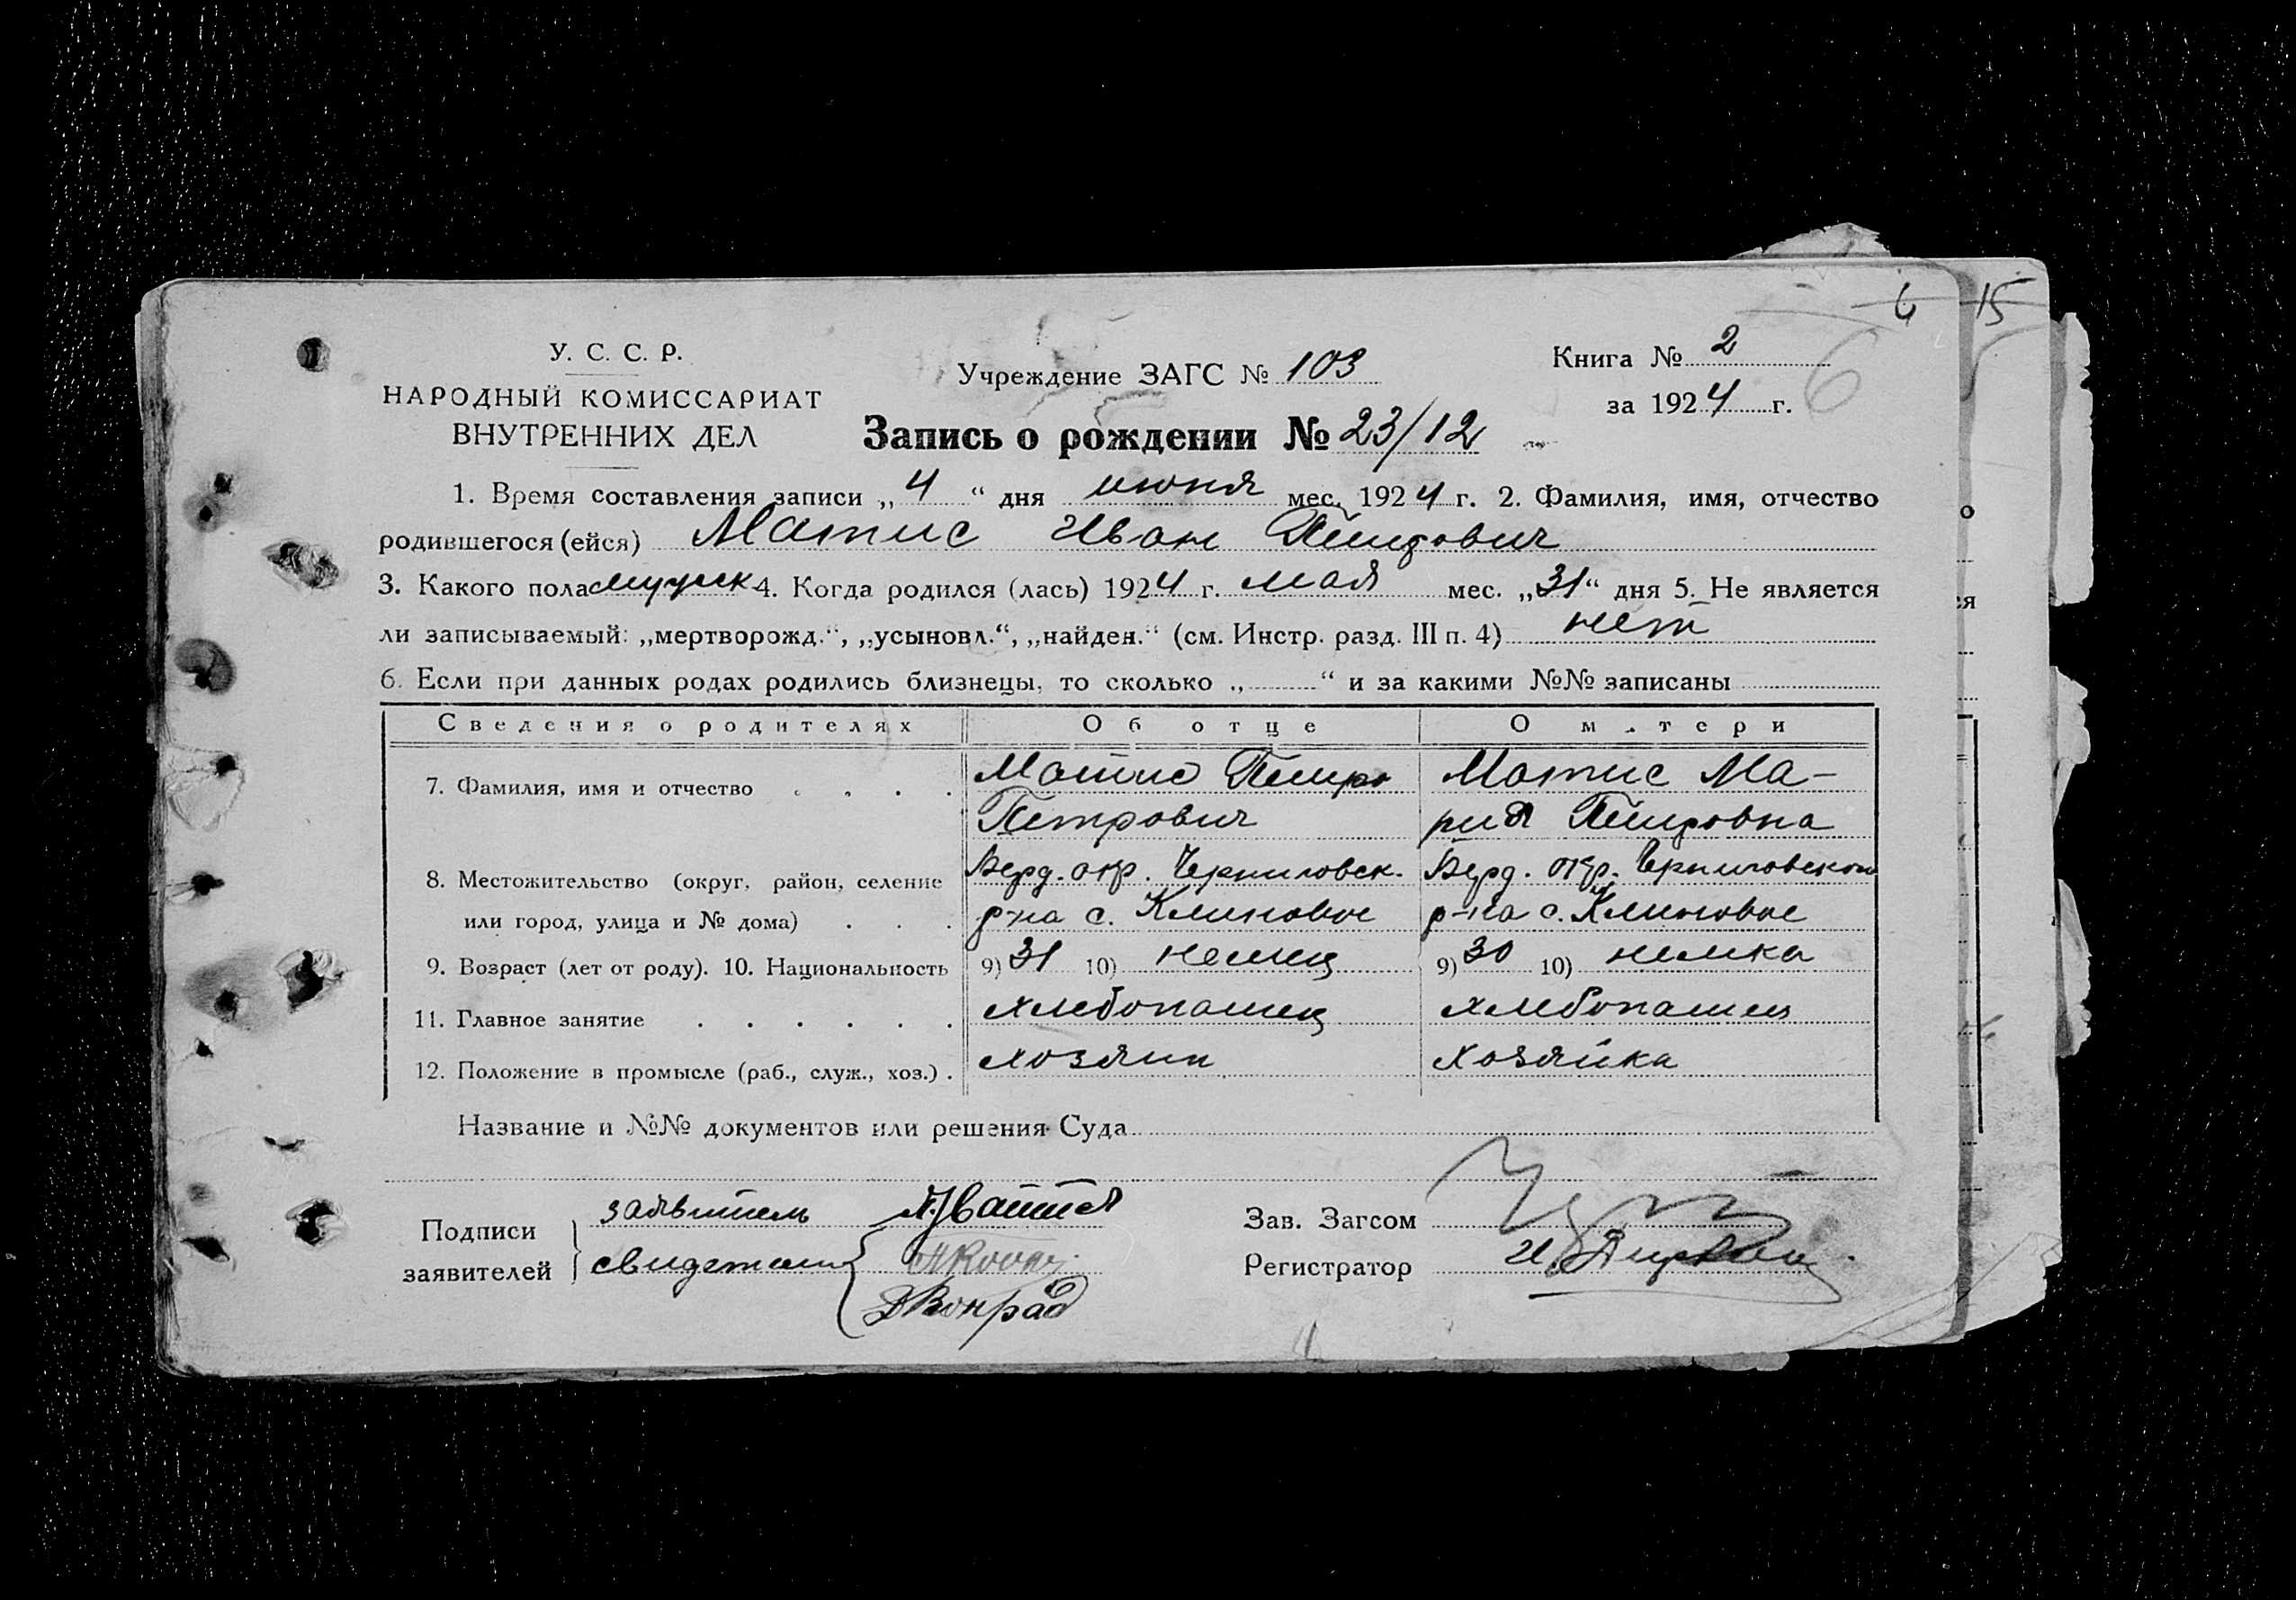 6 15
У. С. С. Р.
НАРОДНЫЙ КОМИССАРИАТ
ВНУТРЕННИХ ДЕЛ
Учреждение ЗАГС № 103
Книга № 2
за 1924 г.
6
Запись о рождении № 23/12
1. Время составления записи „4“ дня июня мес. 1924 г. 2. Фамилия, имя, отчество
родившегося (ейся) Матис Иван Петрович
3. Какого пола мужск 4. Когда родился (лась) 1924 г. мая мес. „31“ дня 5. Не является
ли записываемый: „мертворожд.“, „усыновл.“, „найден.“ (см. Инстр. разд. III п. 4) нет
6. Если при данных родах родились близнецы, то сколько „ “ и за какими №№ записаны
Сведения о родителях Об отце О м.тери
7. Фамилия, имя и отчество Матис Петро Матис Ма-
Петрович рия Петровна
8. Местожительство (округ, район, селение Берд. окр. Черниговск. Берд. окр. Черниговского
или город, улица и № дома) р-на с. Клиновое р-на с. Клиновое
9. Возраст (лет от роду). 10. Национальность 9) 31 10) немец 9) 30 10) немка
11. Главное занятие хлебопашец хлебопашец
12. Положение в промысле (раб., служ., хоз.) хозяин хозяйка
Название и №№ документов или решения Суда
Подписи заявителей
заявитель
свидетели
ДКонрад
Зав. Загсом
Регистратор